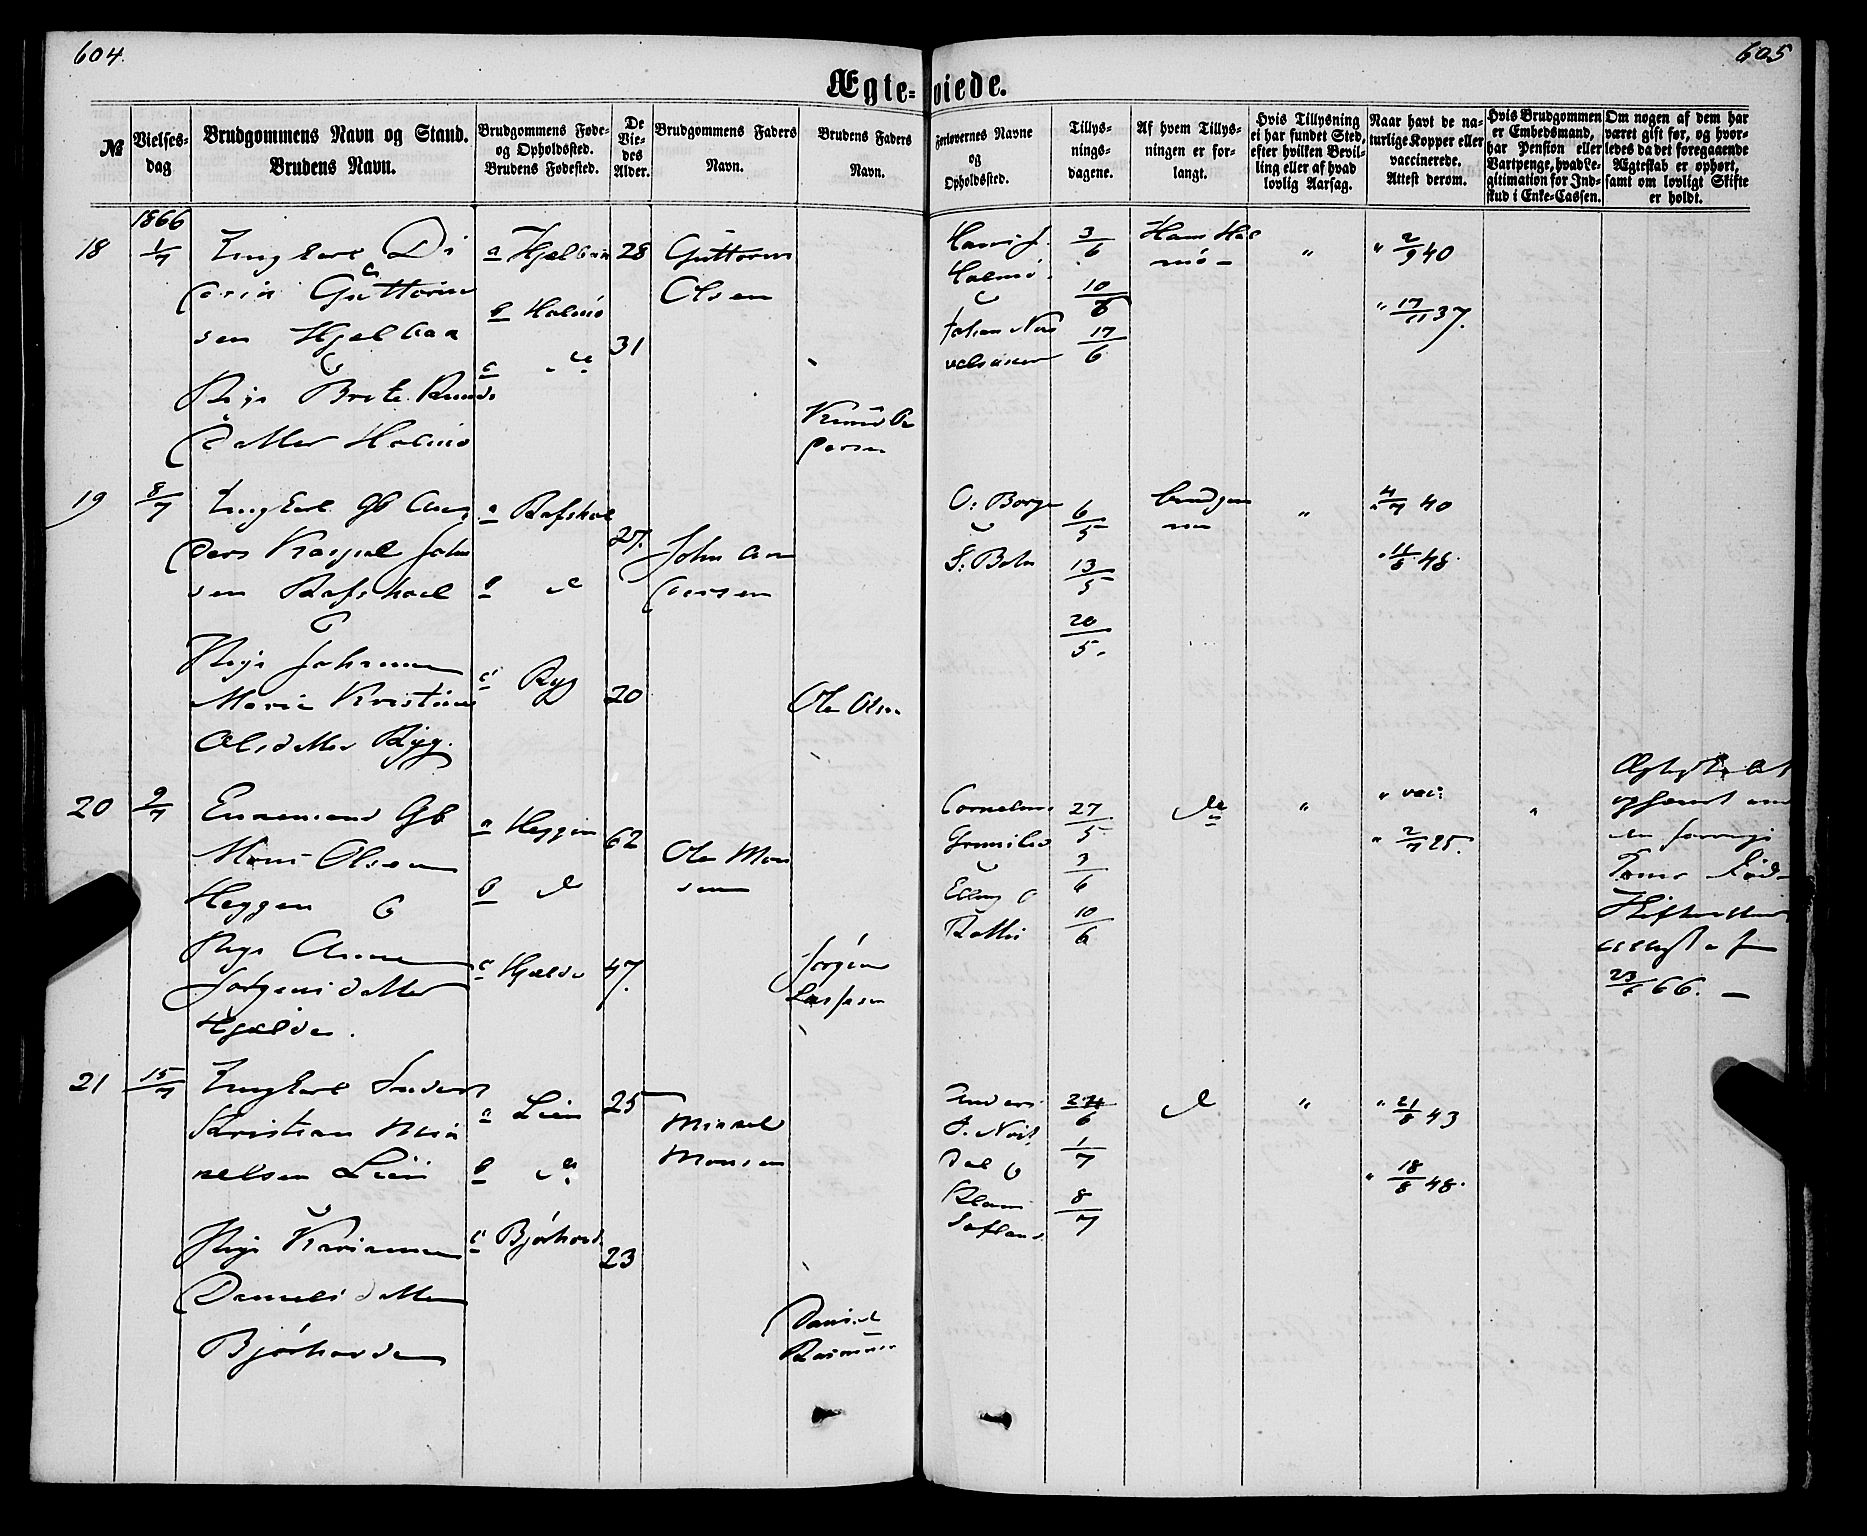 604.
605
Ægte-viede.
№
Vielses-
dag
Brudgommens Navn og Stand.
Brudens Navn.
Brudgommens Føde-
og Opholdssted.
Brudens Fødested.
De
Vie-
des
Alder.
Brudgommens Faders
Navn.
Brudens Faders
Navn.
Forlovernes Navne
og
Opholdssted.
Tillys-
nings-
dagene.
Af hvem Tillys-
ningen er for-
langt.
Hvis Tillysning
ei har fundet Sted,
efter hvilken Bevil-
ling eller af hvad
lovlig Aarsag.
Naar havt de na-
turlige Kopper eller
vaccinerede.
Attest derom.
Hvis Brudgommen
er Embedsmand,
har Pension eller
Vartpenge, hvad Le-
gitimation for Ind-
skud i Enke-Cassen.
Om nogen af dem har
været gift før, og hvor-
ledes da det foregaaende
Ægteskab er ophørt,
samt om lovligt Skifte
er holdt.
1866
18
1/7
Ungkarl
Guttorm
sen Hjelbaa
Pige Brite Knuds
datter Holmø
a Hjelbaa
b Holmø
c do
28
31
Guttorm
Olsen
Knud
Hans J.
Holmø
Johan
3/6
10/6
17/6
Hans Hol
mø -
"
" 2/9 40
" 17/11 37.
19
8/7
Ungkarl Gb An
ders Kaspel John
sen
Pige Johanne
Marie Kristine
Olsdatter Ryg.
a
b d
c Ryg
27.
20
John An
dersen
Ole Olsen
O: Borgen
S: Boln
6/5
13/5
20/5.
brudgom
men
"
4/7 40
" 11/8 48.
20
9/7
Enkemand Gb
Mons Olsen
Heggen &
Pige Anne
Jørgensdatter
Hjelde.
a Heggen
b d
c Hjelde
62
47.
Ole Mon
sen
Jørgen
Lassesen
Cornelius
Elling
27/5
3/6
10/6
do
"
" vac:
" 2/7 25.
"
Ægteskabet
ophævet ved
den forrige
Kones Død
Skifteattest
23/6 66. -
21
15/7
Ungkarl Anders
Kristian Mik
kelsen Lien
Pige Karianne
Danielsdatter
Bjørhovde
a Lien
b do
c Bjørhovd
25
23
Mikkel
Monsen
Daniel
Rasmussen
Anders
24/6
1/7
8/7
d
"
" 21/8 43
" 18/8 48.